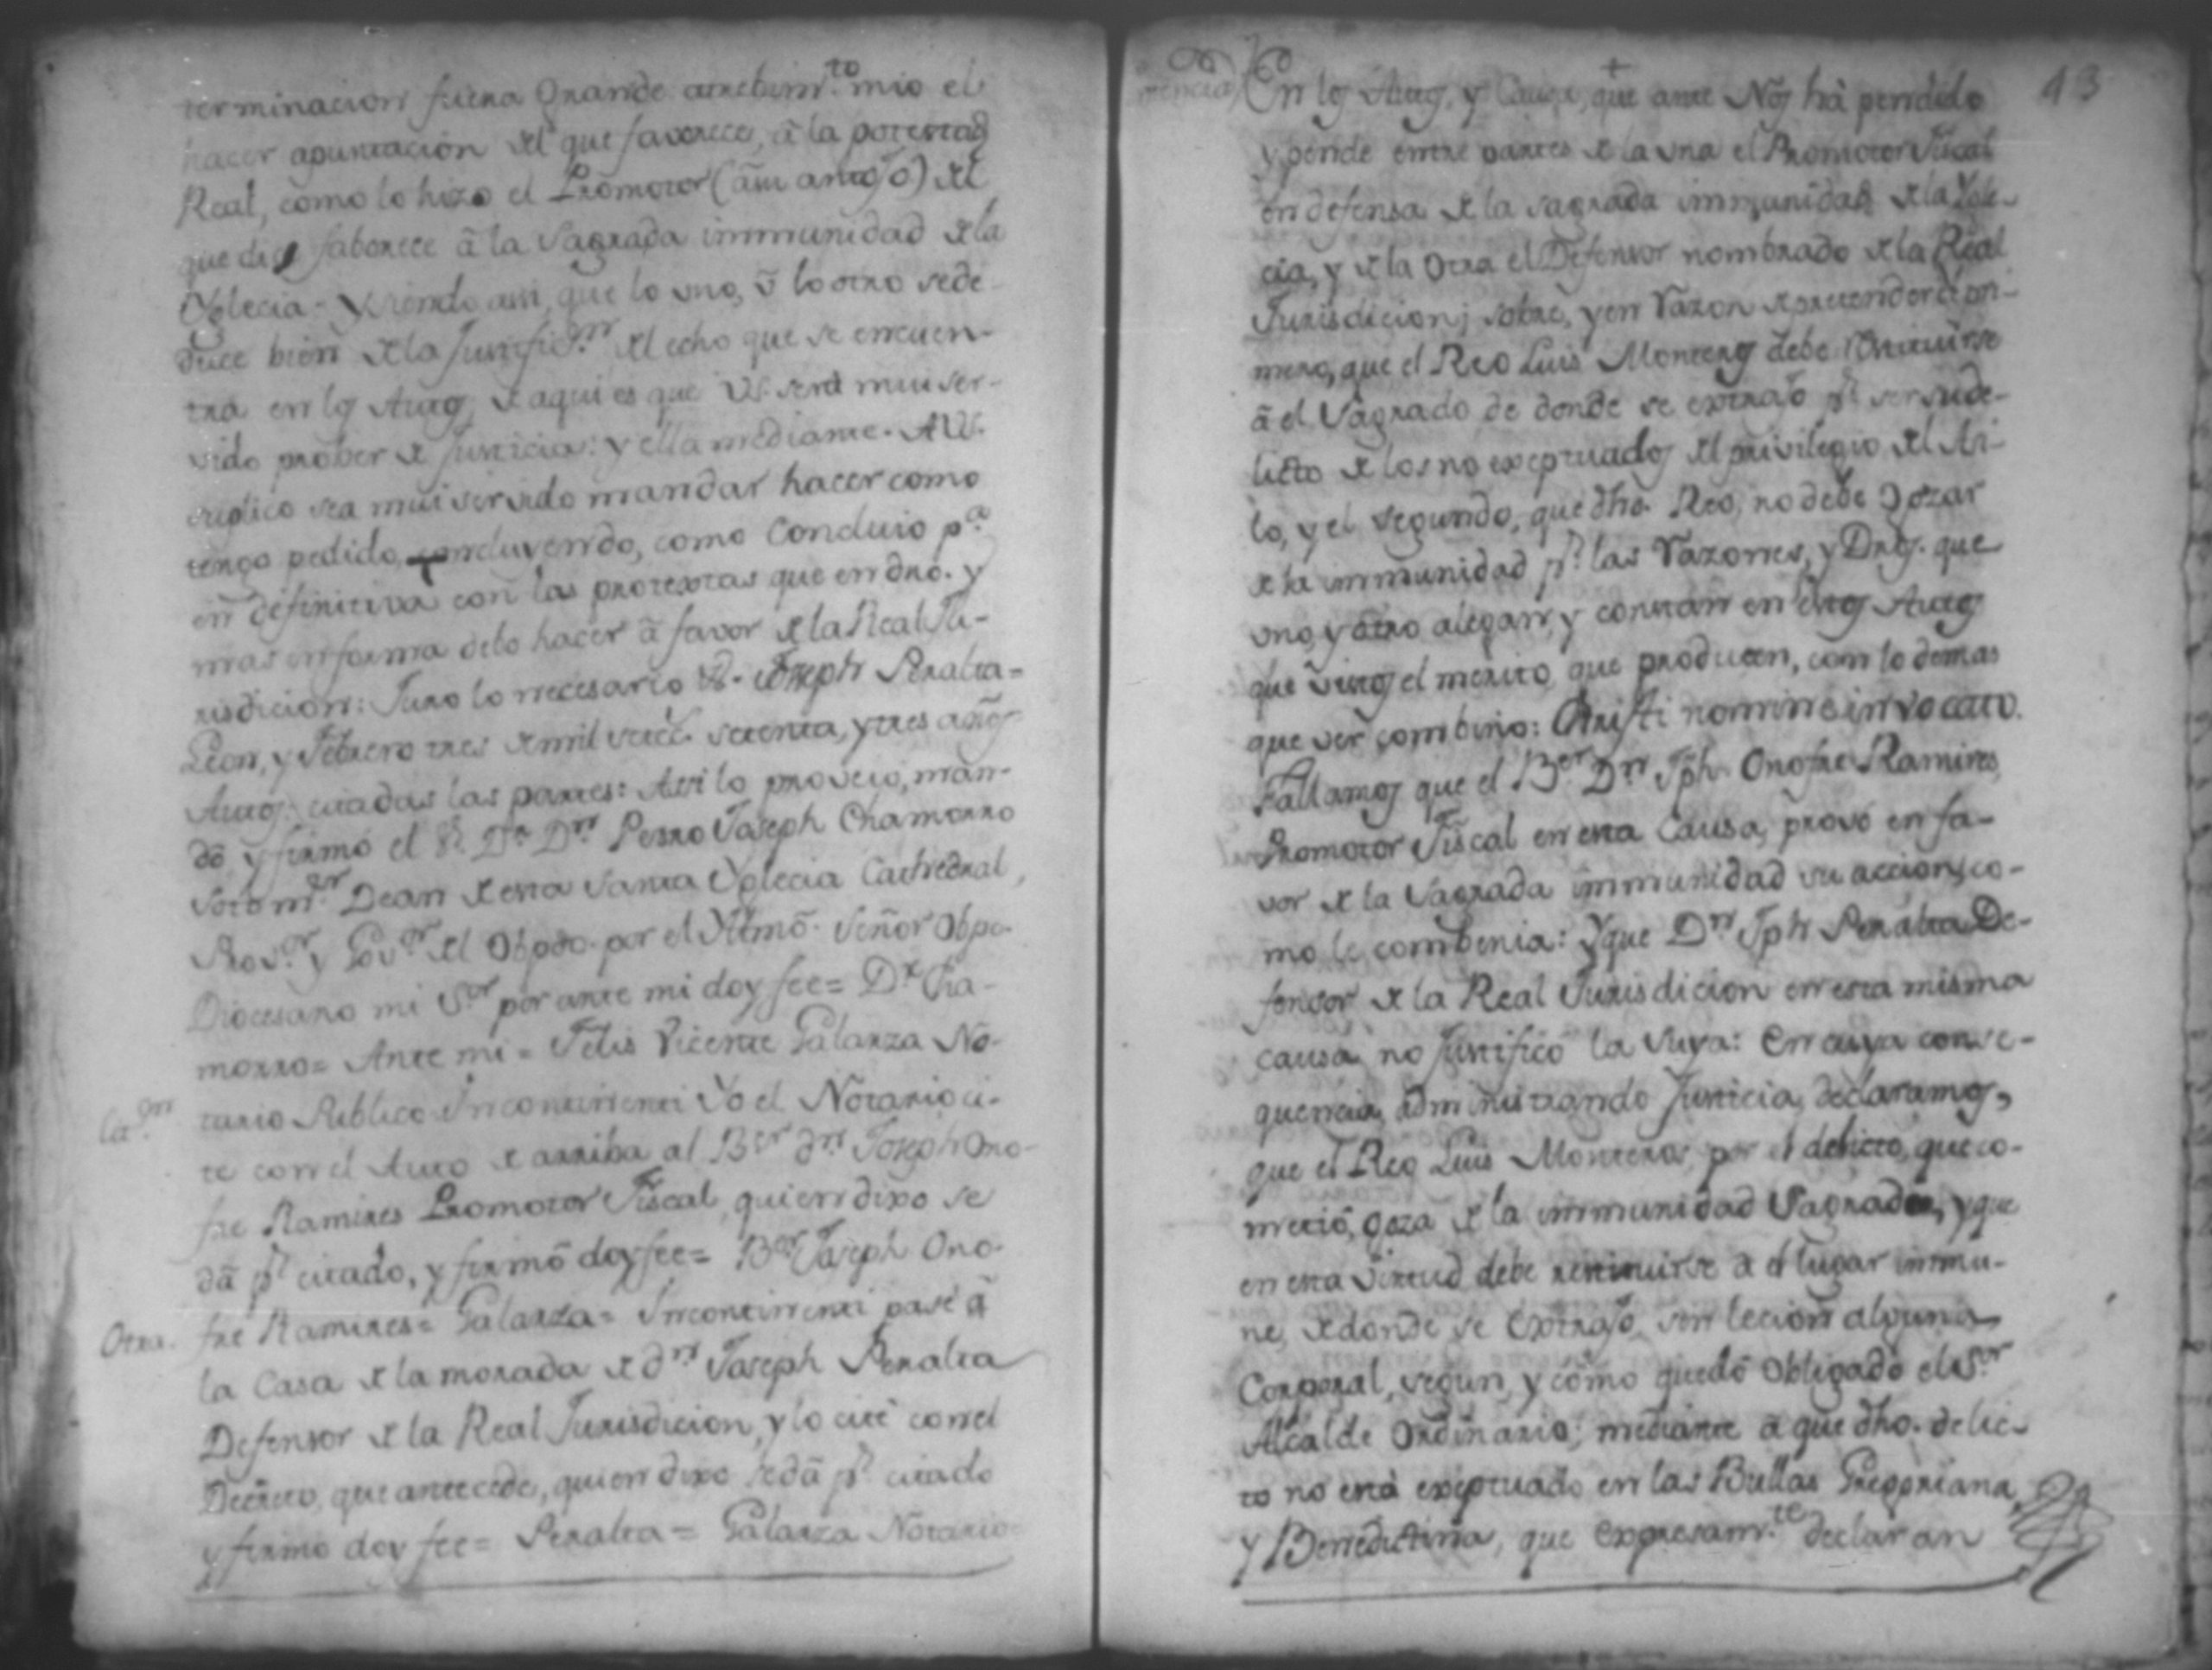 terminacion fuera Grande atrebim.to mio el
hacer apuntacion del que favorece, â la potestad
Real, como lo hizo el Promotor (âsu antojo) del
que dice faborece â la Sagrada immunidad de la
Yglecia. Y siendo assi, que lo uno, û lo otro se de
duce bien de la Justific.on del echo que se encuen-
tra en los Autos, de aqui es que VS. será mui ser-
vido prober de Justicia: y ella mediante. A VS.
suplico sea mui servido mandar hacer como
tengo pedido, concluyendo, como Concluio p.a
en definitiva con las protextas que en dro. y
mas en forma debo hacer â favor de la Real Ju-
risdicion: Juro lo necesario &. Joseph Peralta=
Leon, y Febrero tres de mil setec.s setenta, y tres años
Autos: citadas las partes: Assi lo proveio, man-
dô, y firmó el S. D.r D.n Pedro Joseph Chamorro
Sotom.or Dean de esta Santa Yglecia Cathedral,
Prov.or y Gov.or del Obpdo. por el Yltmô. Señor Obpo.
Diocesano mi S.or por ante mi doy fee= D.r Cha-
morro= Ante mi= Felis Vicente Galarza No-
tario Publico
Cit.on Yncontinenti Yo el Notario ci-
te con el Auto de arriba al B.er d.n Joseph Ono-
fre Ramires Promotor Fiscal, quien dixo se
dâ p.r citado, y firmô doy fee= B.er Joseph Ono-
fre Ramires= Galarza=
Otra. Yncontinenti pasé â
la Casa de la morada de d.n Joseph Peralta
Defensor de la Real Jurisdicion, y lo cité con el
Decreto, que antecede, quien dixo se dâ p.r citado
y firmo doy fee= Peralta= Galarza Notario
13
tencia En los Autos, y Causa, que ante Nos hà pendido
y pende entre partes de la una el Promotor Fiscal
en defensa de la sagrada immunidad de la Ygle-
cia, y de la Otra el Defensor nombrado de la Real
Jurisdicion; sobre, y en razon de pretender el pri-
mero, que el Reo Luis Monteros debe restituirse
â el Sagrado de donde se extrajo p.r ser su de-
licto de los no exeptuados del privilegio del Asi-
lo, y el segundo, que dho. Reo, no debe Gozar
de la immunidad p.r las razones, y Dros. que
uno, y otro alegan, y constan en estos Autos
que vistos el merito que producen, con lo demas
que ver combino: Christi nomine invocato.
Fallamos que el B.er D.n Jph. Onofre Ramires
Promotor Fiscal en esta Causa, provó en fa-
vor de la Sagrada immunidad su accion, co-
mo le combenia: Y que D.n Jph Peralta De-
fensor de la Real Jurisdicion en esta misma
causa no Justificó la Suya: En cuya conse-
quencia, administrando Justicia, declaramos,
que el Reo Luis Monteros por el delicto, que co-
metió, goza de la immunidad Sagrada, y que
en esta virtud debe restituirse â el lugar inmu-
ne, de donde se extrajo, sin lecion alguna
Corporal, segun, y cómo quedó Obligado el S.or
Alcalde Ordinario; mediante â que dho. delic-
to no está exeptuado en las Bullas Gregoriana,
y Benedictina, que expresam.te declaran